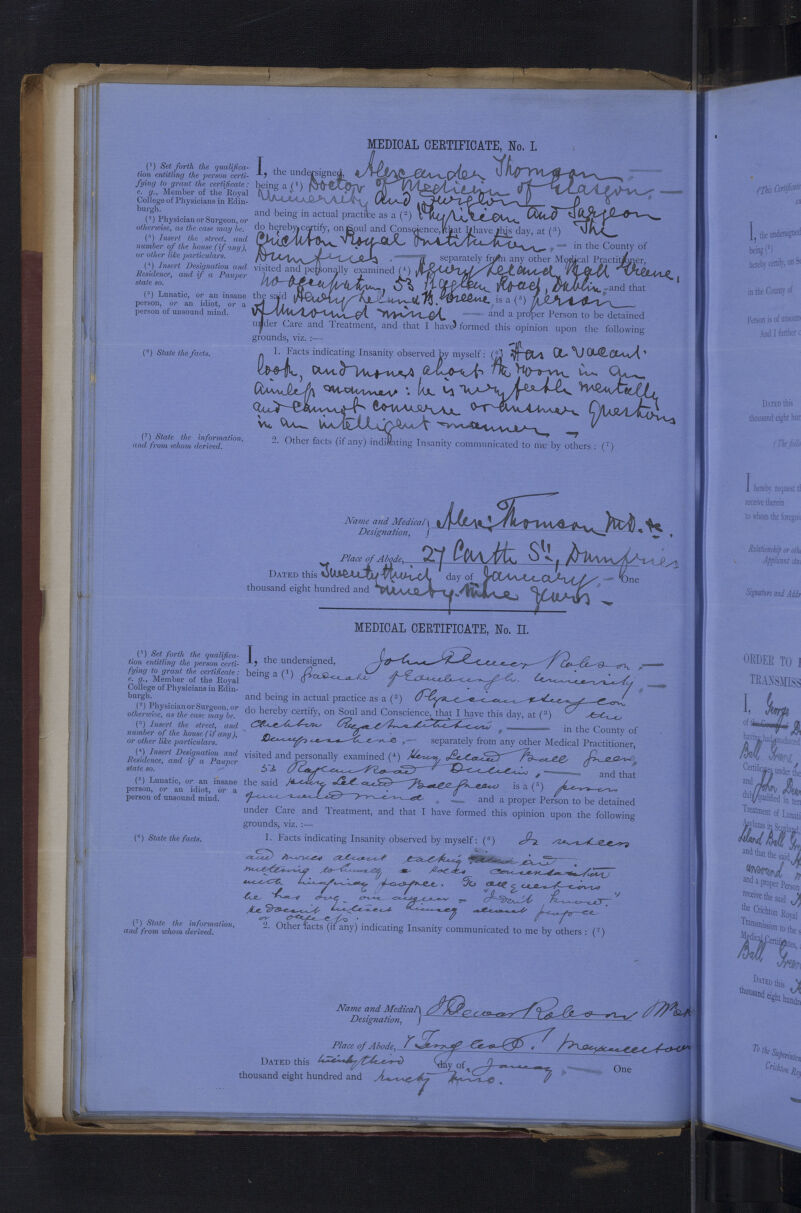 MEDICAL CERTIFICATE, No. I.
(1) Set forth the qualifica-
tion entitling the person certi-
fying to grant the certificate:
e. g., Member of the Royal
College of Physicians in Edin-
burgh.
(2) Physician or Surgeon, or
otherwise, as the case may be.
(3) Insert the street, and
number of the house (if any),
or other like particulars.
(4) Insert Designation and
Residence, and if a Pauper
state so.
(5) Lunatic, or an insane
person, or an idiot, or a
person of unsound mind.
(6) State the facts.
(7) State the information,
and from whom derived.
I, the undersigned, Alexander Thomson
being a (1) Doctor of Medicine of Glasgow
University and Surgeon
and being in actual practice as a (2) Physician and Surgeon
do hereby certify, on Soul and Conscience, that I have this day, at (3) The
Crichton Royal Institution, in the County of
Dumfries separately from any other Medical Practitioner,
visited and personally examined (4) Henry Leland Ball Greene,
no occupation, 53 Raglan Road, Dublin, and that
the said Henry Leland B. Greene is a (5) person
of Unsound mind, and a proper Person to be detained
under Care and Treatment, and that I have formed this opinion upon the following
grounds, viz. :—
1. Facts indicating Insanity observed by myself: (6) Has a vacant
look, and moves about the room in an
aimless manner: he is very feeble mentally
and cannot converse or answer questions
in an intelligent manner
2. Other facts (if any) indicating Insanity communicated to me by others : (7)
Name and Medical Designation, Alexr Thomson M.D. &c.
Place of Abode, 27 Castle St., Dumfries
DATED this Twenty third day of January, One
thousand eight hundred and ninety-nine years
MEDICAL CERTIFICATE, No. II.
(1) Set forth the qualifica-
tion entitling the person certi-
fying to grant the certificate:
e. g., Member of the Royal
College of Physicians in Edin-
burgh.
(2) Physician or Surgeon, or
otherwise, as the case may be.
(3) Insert the street, and
number of the house (if any),
or other like particulars.
(4) Insert Designation and
Residence, and if a Pauper
state so.
(5) Lunatic, or an insane
person, or an idiot, or a
person of unsound mind.
(6) State the facts.
(7) State the information,
and from whom derived.
I, the undersigned, John Dewar Robson
being a (1) Graduate of Edinburgh University,
and being in actual practice as a (2) Physician & Surgeon
do hereby certify, on Soul and Conscience, that I have this day, at (3) the
Crichton Royal Institution, in the County of
Dumfriesshire, separately from any other Medical Practitioner,
visited and personally examined (4) Henry Leland Ball Greene,
53 Raglan Road Dublin, and that
the said Henry Leland Ball Greene is a (5) person
of unsound mind, and a proper Person to be detained
under Care and Treatment, and that I have formed this opinion upon the following
grounds, viz. :—
1. Facts indicating Insanity observed by myself: (6) Is restless
and moves about talking and
muttering to himself & holds
with imaginary people. To all questions
he has one answer "I don't know."
He doesn't interest himself about people
or objects.
2. Other facts (if any) indicating Insanity communicated to me by others : (7)
Name and Medical Designation, J Dewar Robson
Place of Abode, 7 Terregles St. Maxwelltown
DATED this twenty third day of January, One
thousand eight hundred and ninety nine.
(This Certificate
I, the undersigned
being (1)
hereby certify, on S
in the County of
Person is of unsoun
And I further c
DATED this
thousand eight hun
(The foll
I hereby request t
receive therein
to whom the foregoi
Relationship or oth
Applicant sta
Signature and Addr
ORDER TO
TRANSMISS
I, George
Ball Greene,
Certificates under the
and John Dewar
duly qualified in ter
Treatment of Lunati
Asylums in Scotland
Leland Ball Gr
and that the said
unsound
and a proper Person
receive the said
the Crichton Royal
Transmission to the
Medical Certificates,
Ball Greene
DATED this
thousand eight hundr
To the Superinten
Crichton Ro